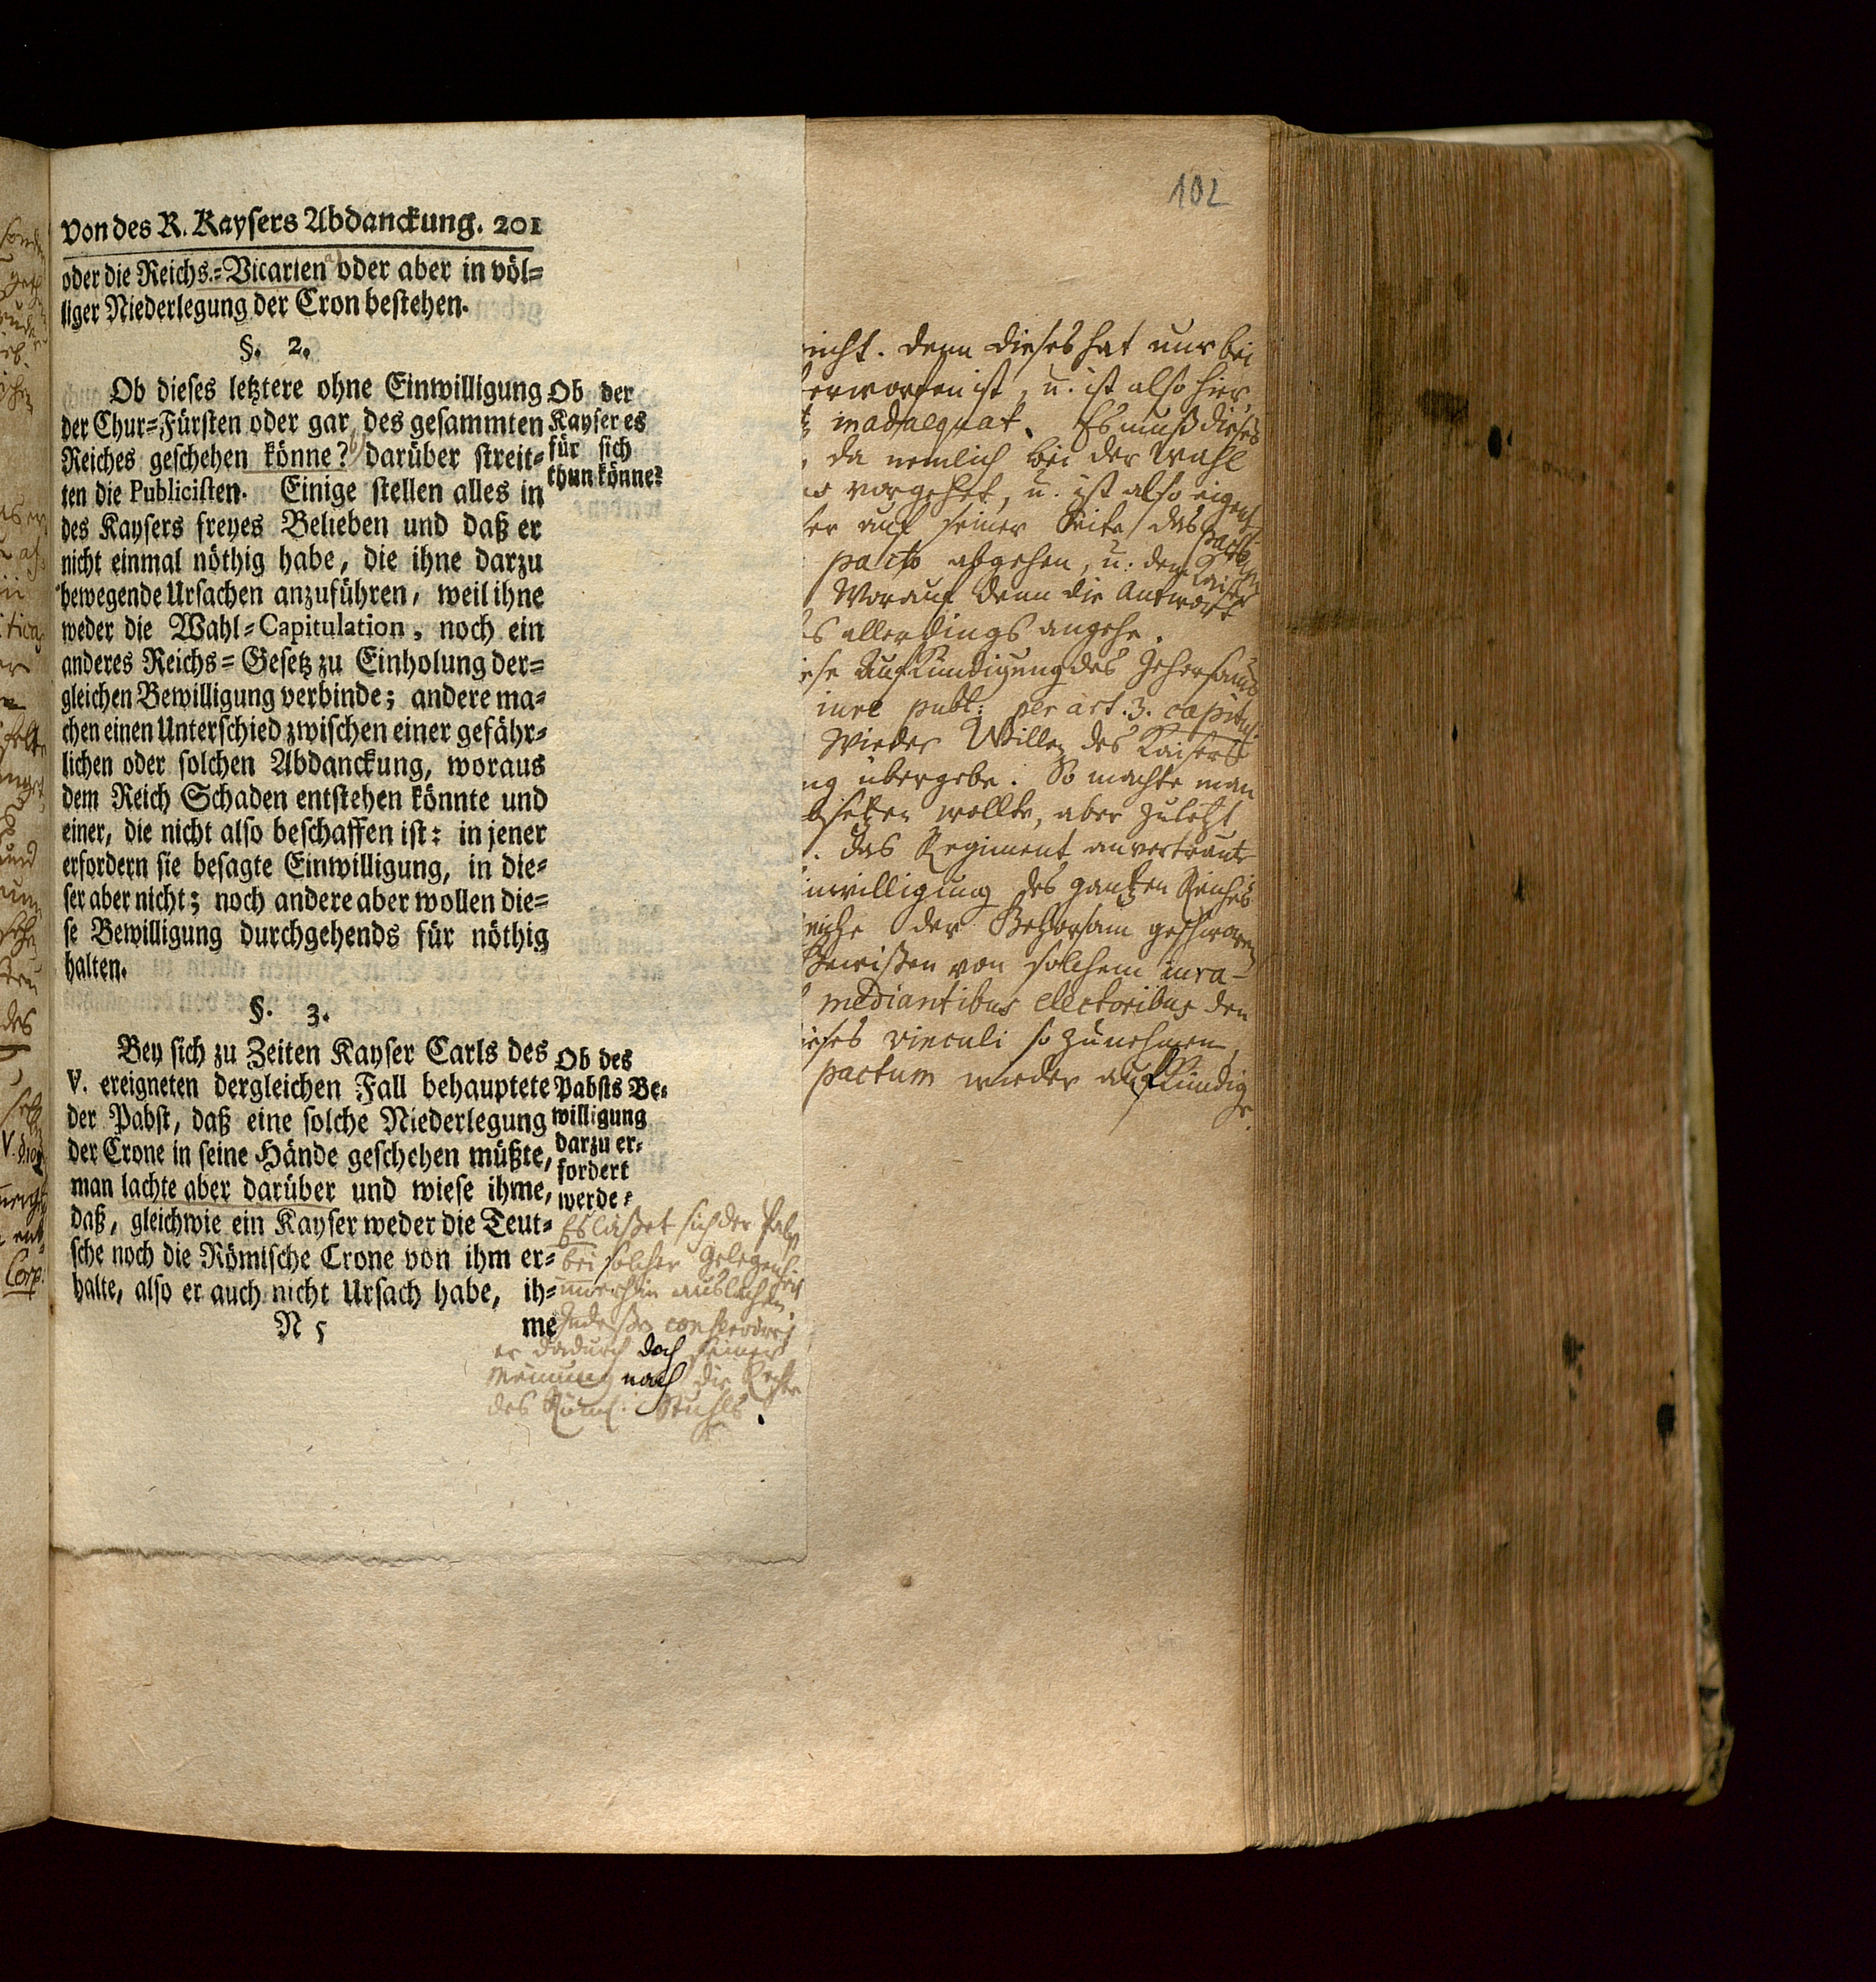 102
Von des R. Kaysers Abdanckung. 201
oder die Reichs-Vicarien a) oder aber in völ-
liger Niederlegung der Cron bestehen.
§. 2.
Ob dieses letztere ohne Einwilligung
der Chur-Fürsten oder gar des gesammten
Reiches geschehen könne? b) darüber streit-
ten die Publicisten. Einige stellen alles in
des Kaysers freyes Belieben und daß er
nicht einmal nöthig habe, die ihne darzu
bewegende Ursachen anzuführen, weil ihne
weder die Wahl-Capitulation, noch ein
anderes Reichs-Gesetz zu Einholung der-
gleichen Bewilligung verbinde; andere ma-
chen einen Unterschied zwischen einer gefähr-
lichen oder solchen Abdanckung, woraus
dem Reich Schaden entstehen könnte und
einer, die nicht also beschaffen ist: in jener
erfordern sie besagte Einwilligung, in die-
ser aber nicht; noch andere aber wollen die-
se Bewilligung durchgehends für nöthig
halten.
Ob der
Kayser es
für sich
thun könne?
§. 3.
Bey sich zu Zeiten Kayser Carls des
V. ereigneten dergleichen Fall behauptete
der Pabst, daß eine solche Niederlegung
der Crone in seine Hände geschehen müßte,
man lachte aber darüber und wiese ihme,
daß, gleichwie ein Kayser weder die Teut-
sche noch die Römische Crone von ihm er-
halte, also er auch nicht Ursach habe, ih-
N 5 me
Ob des
Pabsts Be-
willigung
darzu er-
fordert
werde?
Es läßet sich der Pabst
bei solcher Gelegenheit
immerhin auslachen.
Indeßen conservirt
er dadurch doch seiner
Meinung nach die Rechte
des Röm. Stuhls.
nicht. denn dieses hat nur bei
erworben ist, u. ist also hier
inadaequat. Es muß dieses
da nemlich bei der Wahl
vorgehet, u. ist also eigentl.
auf seiner Seite das
pacto abgehen, u. dem Kaiser
Worauf denn die Antwort
s allerdings angehe.
ese Aufkündigung des Gehorsams
iure publ: per art. 3. capitul.
wieder Willen des Kaisers
ng übergebe. So machte man
bsetzen wollte, aber zuletzt
. das Regiment anvertraute
inwilligung des gantzen Reichs
eiche der Gehorsam geschworen
Gewißen von solchem iura-
mediantibus electoribus den
ieses vinculi so zunehmen,
pactum wieder aufkündige.